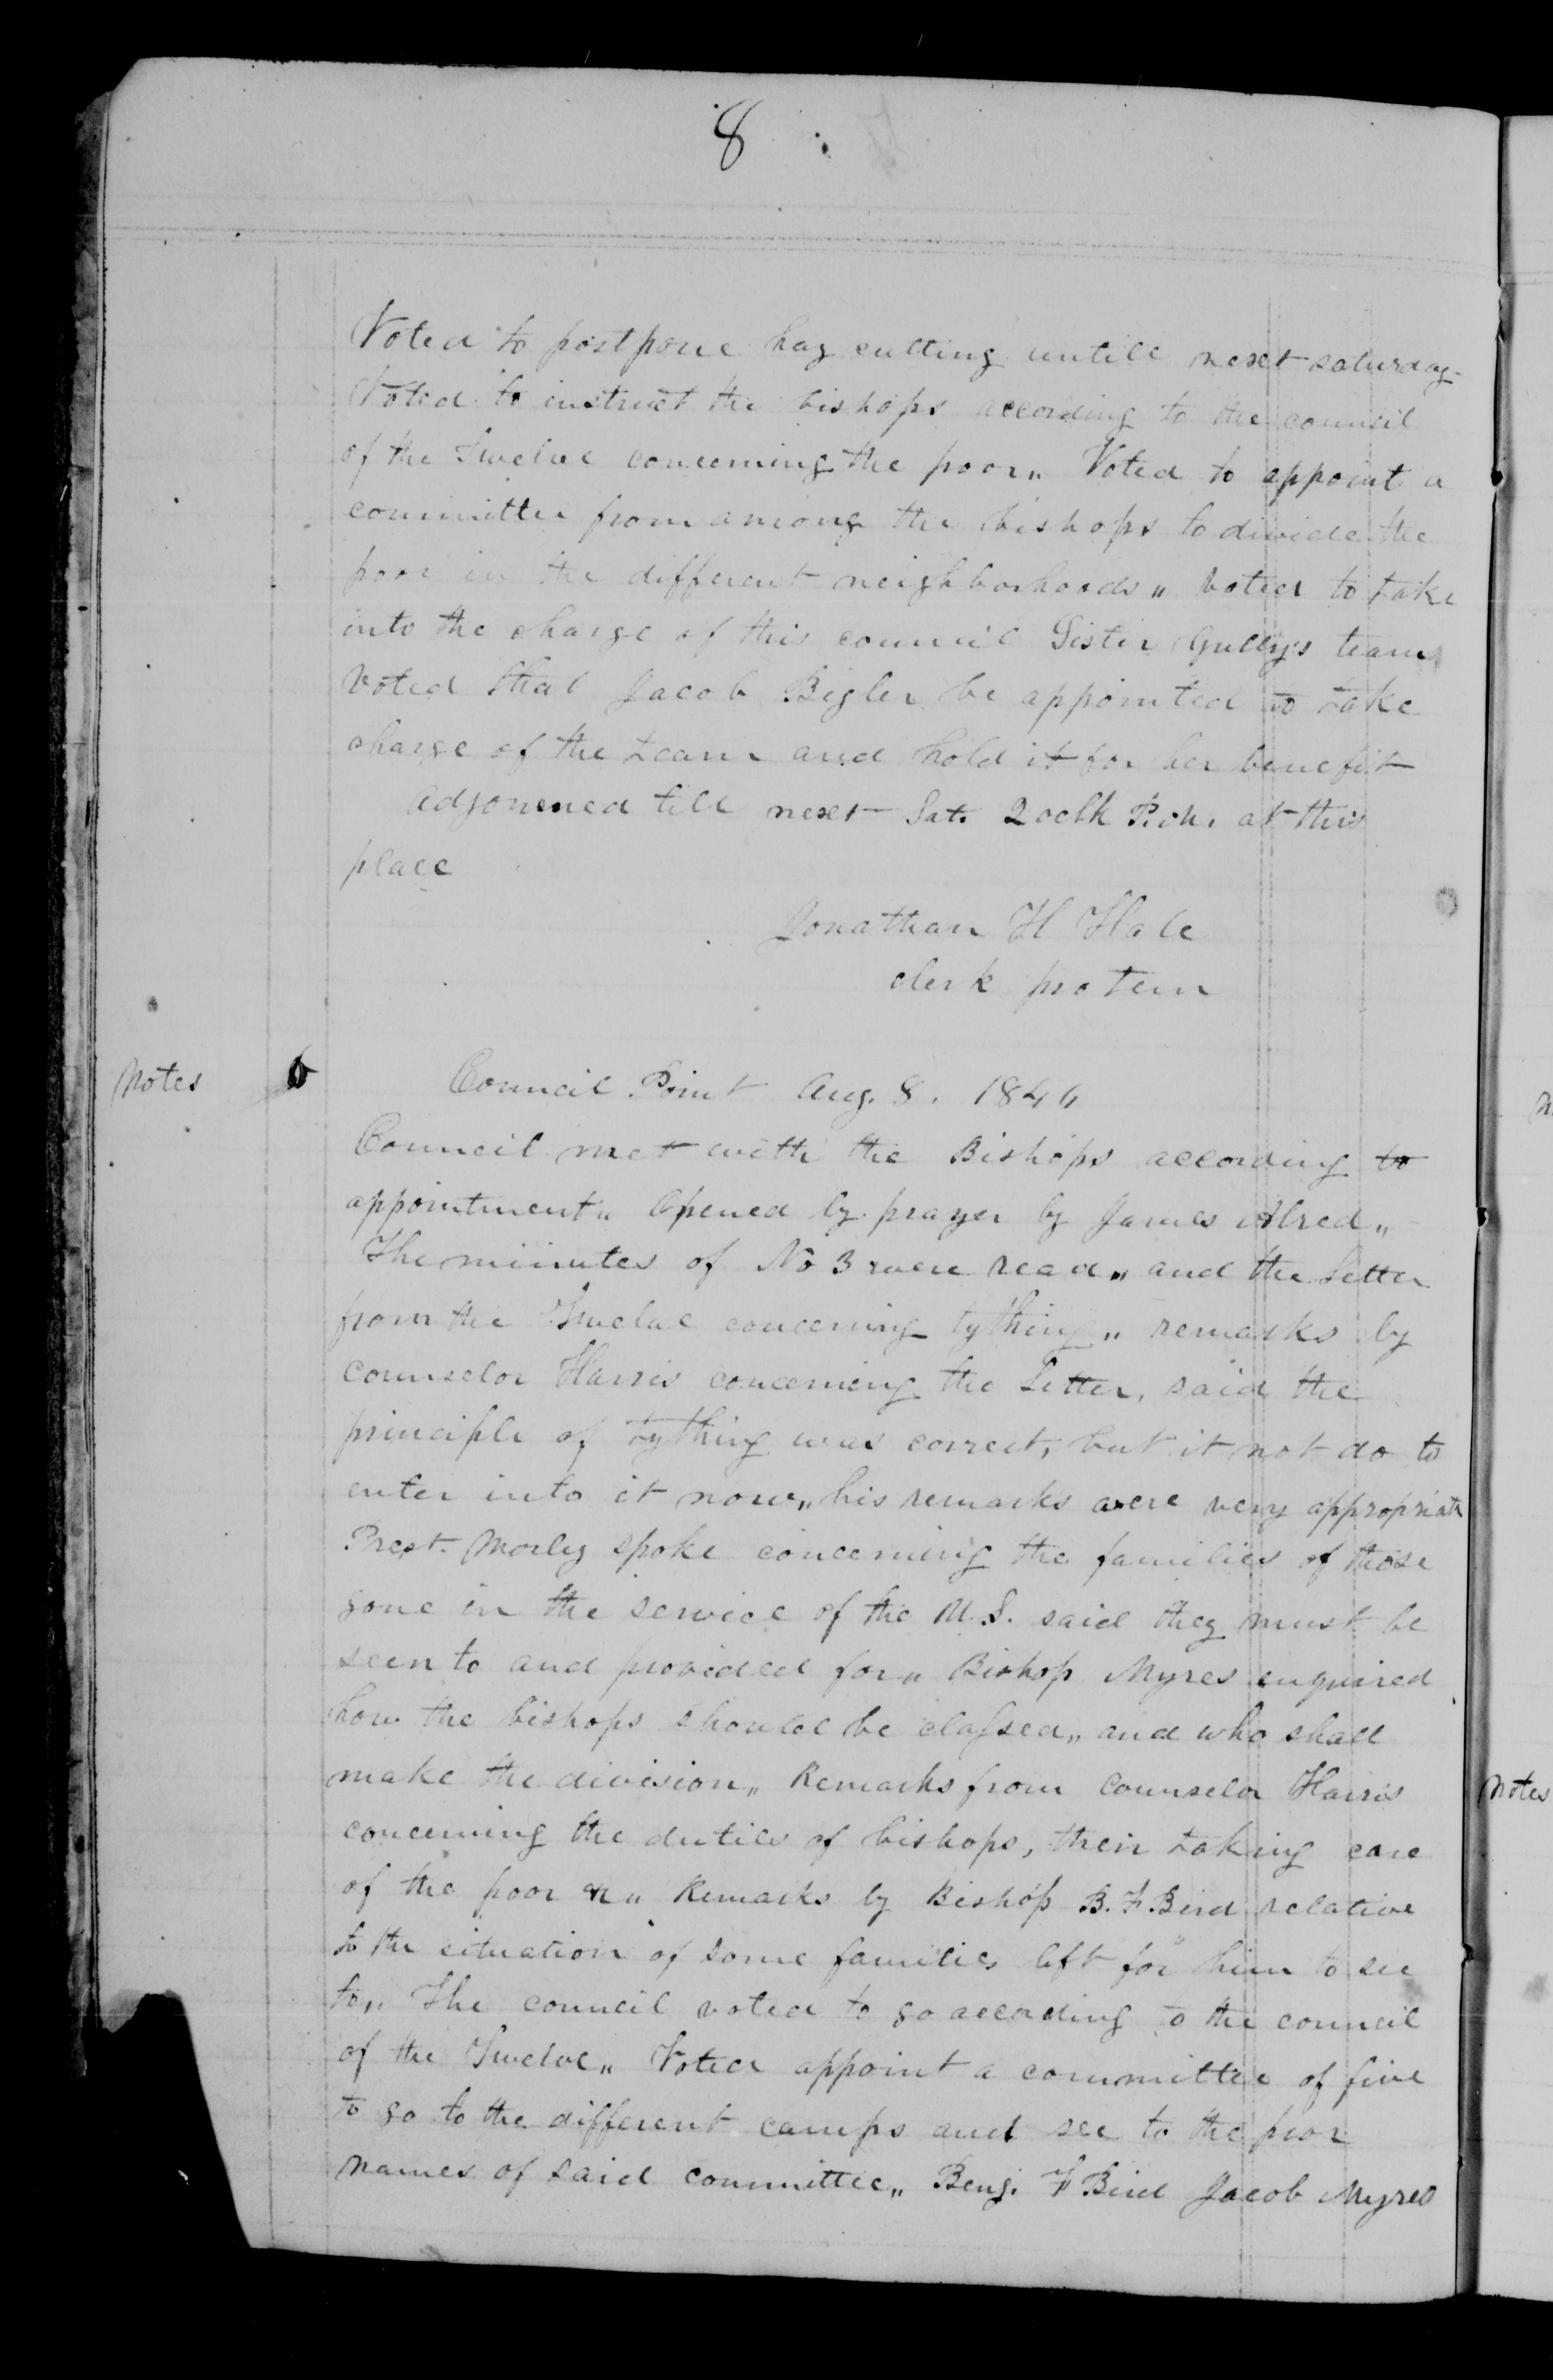 8
Voted to postpone hay cutting untill next saturday-
Voted to instruct the bishops according to the council
of the Twelve concerning the poor,, Voted to appoint a
committee from among the bishops to divide the
poor in the different neighborhoods ,, voted to take
into the charge of this council Sister Gully's team
Voted that Jacob Bigler be appointed to take
charge of the team and hold it for her benefit
adjourned till next Sat. 2 oclk P.M. at this
place
Jonathan H Hale
clerk protem
Notes 6 Council Point Aug. 8. 1846
Council met with the Bishops according to
appointment,, Opened by prayer by James Alred,,
The minutes of No 3 were read,, and the Letter
from the Twelve concerning tything,, remarks by
counselor Harris concerning the Letter, said the
principle of tything was correct, but it not do to
enter into it now,, his remarks were very appropriate
Prest. Morley spoke concerning the families of those
gone in the service of the U.S. said they must be
seen to and provided for,, Bishop Myres enquired
how the bishops should be classed,, and who shall
make the division,, Remarks from Counselor Harris
concerning the duties of bishops, their taking care
of the poor &c,, Remarks by Bishop B. F. Bird relative
to the situation of some families left for him to see
to,, The council voted to go according to the council
of the Twelve,, Voted appoint a committee of five
to go to the different camps and see to the poor
names of said committee,, Benj. F Bird Jacob Myres
Notes